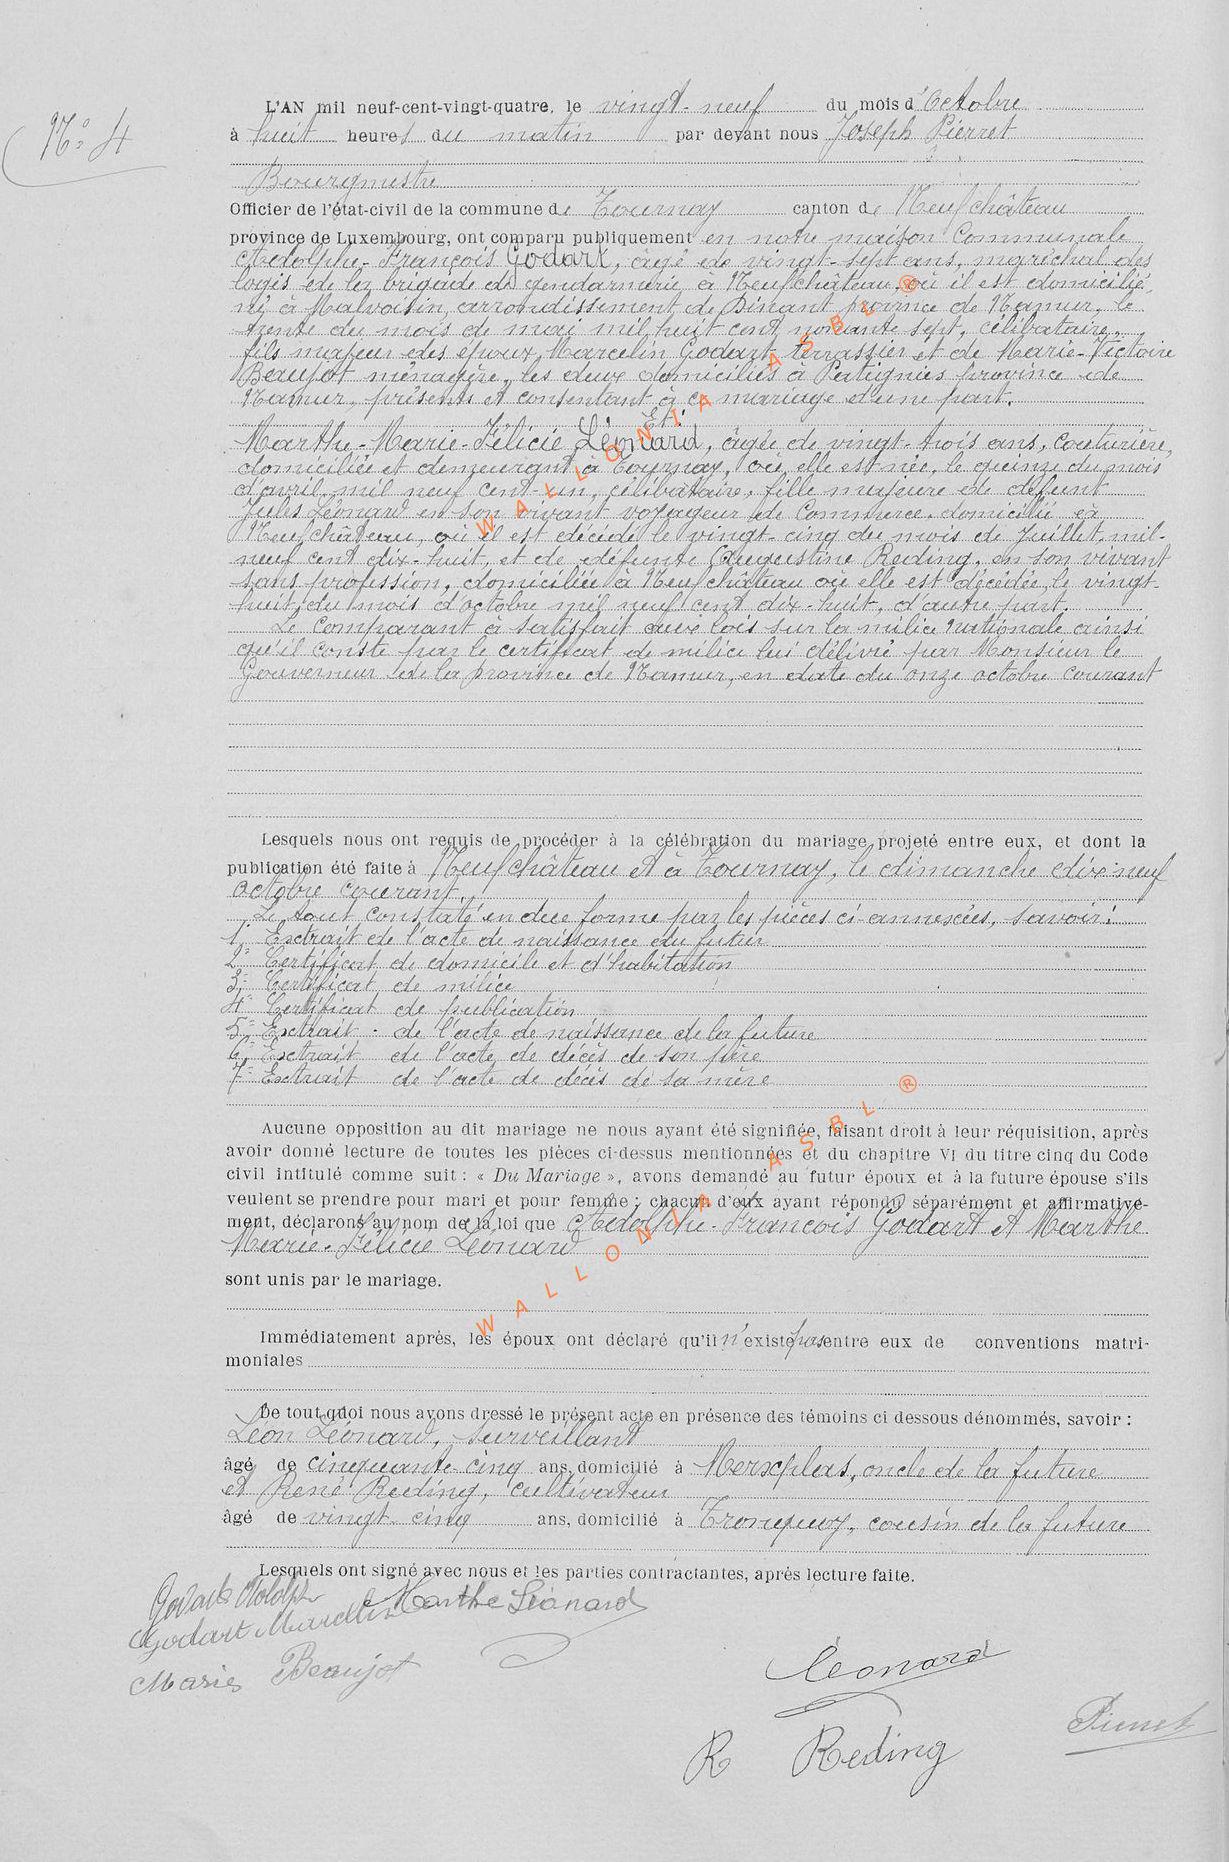 N° 4
L'AN mil neuf-cent-vingt-quatre, le vingt-neuf du mois d'Octobre
à huit heures du matin par devant nous Joseph Pierret
Bourgmestre
Officier de l'état-civil de la commune de Tournay canton de Neufchâteau
province de Luxembourg, ont comparu publiquement en notre maison Communale
Adolphe-François Godart, âgé de vingt-sept ans, maréchal des
logis de la brigade de gendarmerie à Neufchâteau, où il est domicilié,
né à Malvoisin, arrondissement de Dinant province de Namur, le
trente du mois de mai mil huit cent nonante sept, célibataire,
fils majeur des époux, Marcelin Godart terrassier et de Marie-Victoire
Beaujot ménagère, les deux domiciliés à Patignies province de
Namur, présents et consentant à ce mariage d'une part.
Et.
Marthe-Marie-Félicie Léonard, âgée de vingt-trois ans, couturière,
domiciliée et demeurant à Tournay, où elle est née, le quinze du mois
d'avril mil neuf cent-un, célibataire, fille majeure de défunt
Jules Léonard en son vivant voyageur de commerce, domicilié à
Neufchâteau, où il est décédé le vingt-cinq du mois de Juillet, mil-
neuf cent dix-huit, et de défunte Augustine Reding, en son vivant
sans profession, domiciliée à Neufchâteau où elle est décédée, le vingt-
huit du mois d'octobre mil neuf cent dix-huit, d'autre part.
Le comparant à satisfait aux lois sur la milice nationale ainsi
qu'il conste par le certificat de milice lui délivré par Monsieur le
Gouverneur de la province de Namur, en date du onze octobre courant
Lesquels nous ont requis de procéder à la célébration du mariage projeté entre eux, et dont la
publication été faite à Neufchâteau et à Tournay, le dimanche dix-neuf
octobre courant.
Le tout constaté en due forme par les pièces ci-annexées, savoir:
1° Extrait de l'acte de naissance du futur
2° Certificat de domicile et d'habitation
3° Certificat de milice
4° Certificat de publication
5° Extrait de l'acte de naissance de la future
6° Extrait de l'acte de décès de son père
7° Extrait de l'acte de décès de sa mère
Aucune opposition au dit mariage ne nous ayant été signifiée, faisant droit à leur réquisition, après
avoir donné lecture de toutes les pièces ci-dessus mentionnées et du chapitre VI du titre cinq du Code
civil intitulé comme suit : « Du Mariage », avons demandé au futur époux et à la future épouse s'ils
veulent se prendre pour mari et pour femme ; chacun d'eux ayant répondu séparément et affirmative-
ment, déclarons au nom de la loi que Adolphe-François Godart et Marthe
Marie-Félicie Léonard
sont unis par le mariage.
Immédiatement après, les époux ont déclaré qu'il n'existe pas entre eux de conventions matri-
moniales
De tout quoi nous avons dressé le présent acte en présence des témoins ci dessous dénommés, savoir :
Léon Léonard, surveillant
âgé de cinquante-cinq ans, domicilié à Merxplas, oncle de la future
et René Reding, cultivateur
âgé de vingt-cinq ans, domicilié à Tronquoy, cousin de la future
Lesquels ont signé avec nous et les parties contractantes, après lecture faite.
Godart Adolphe
Marthe Léonard
Godart Marcelin
Marie Beaujot
Léonard
Pierret
R Reding
WALLONIA ASBL ®
WALLONIA ASBL ®